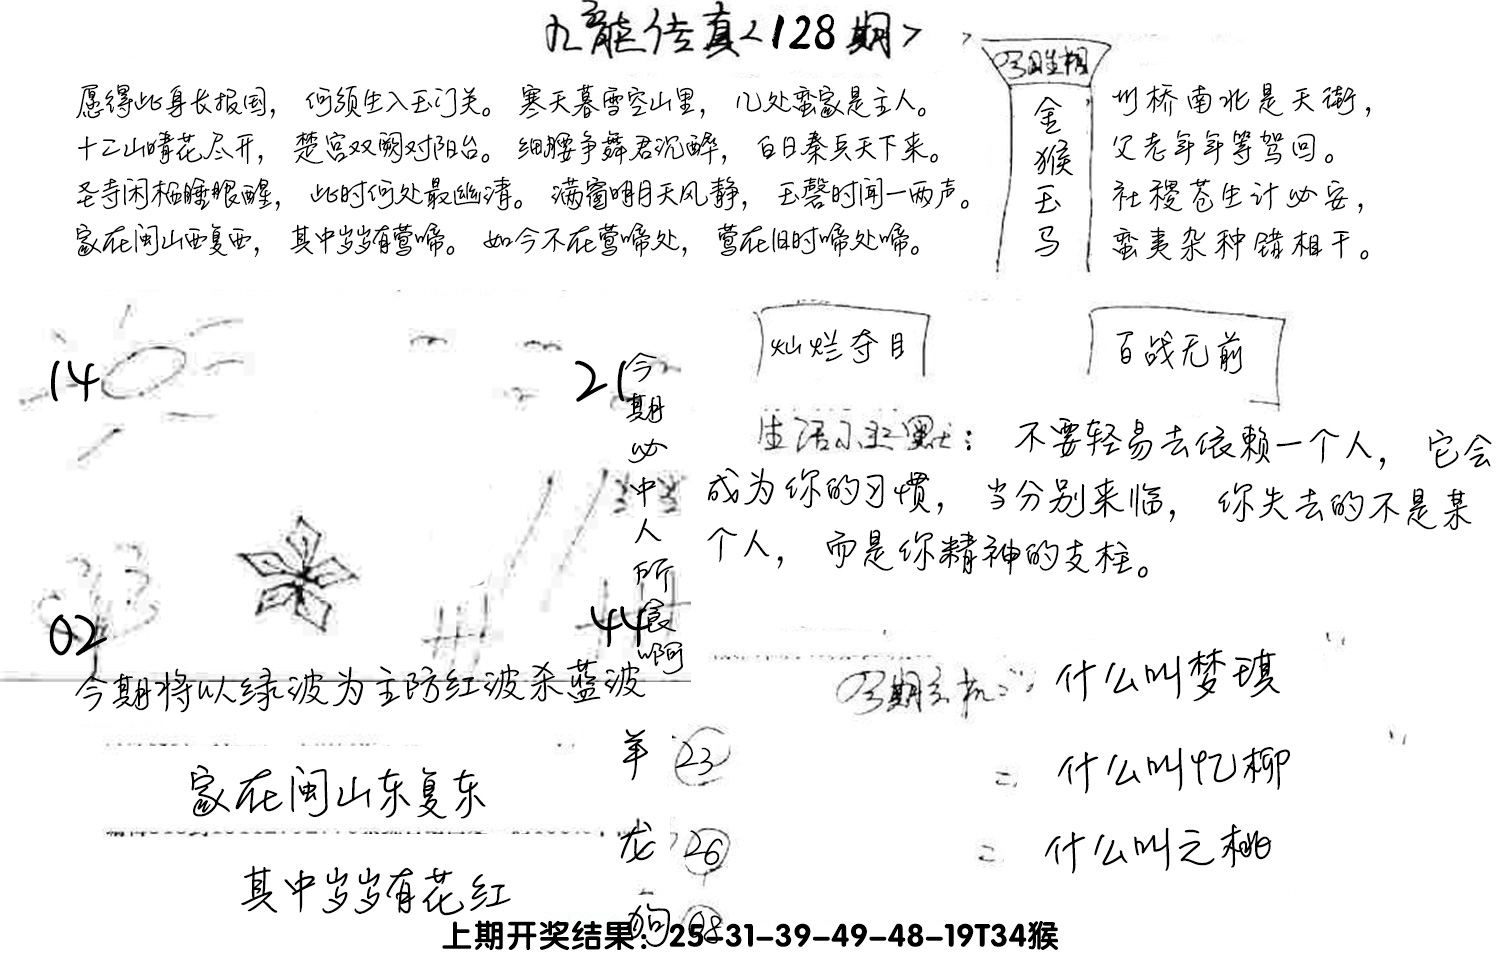 九龙传真<128期>
愿得此身长报国，何须生入玉门关。寒天暮雪空山里，几处蛮家是主人。
十二山晴花尽开，楚宫双阙对阳台。细腰争舞君沉醉，白日秦兵天下来。
圣寺闲栖睡眼醒，此时何处最幽清。满窗明月天风静，玉磬时闻一两声。
家在闽山西复西，其中岁岁有莺啼。如今不在莺啼处，莺在旧时啼处啼。
金猴玉马
州桥南北是天街，
父老年年等驾回。
社稷苍生计必安，
蛮夷杂种错相干。
灿烂夺目
百战无前
14
21
02
44
今期必中人所食啊
生活小幽默：不要轻易去依赖一个人，它会
成为你的习惯，当分别来临，你失去的不是某
个人，而是你精神的支柱。
今期将以绿波为主防红波杀蓝波
什么叫梦琪
什么叫忆柳
什么叫之桃
家在闽山东复东
其中岁岁有花红
羊 23
龙 26
狗 08
上期开奖结果：25-31-39-49-48-19T34猴